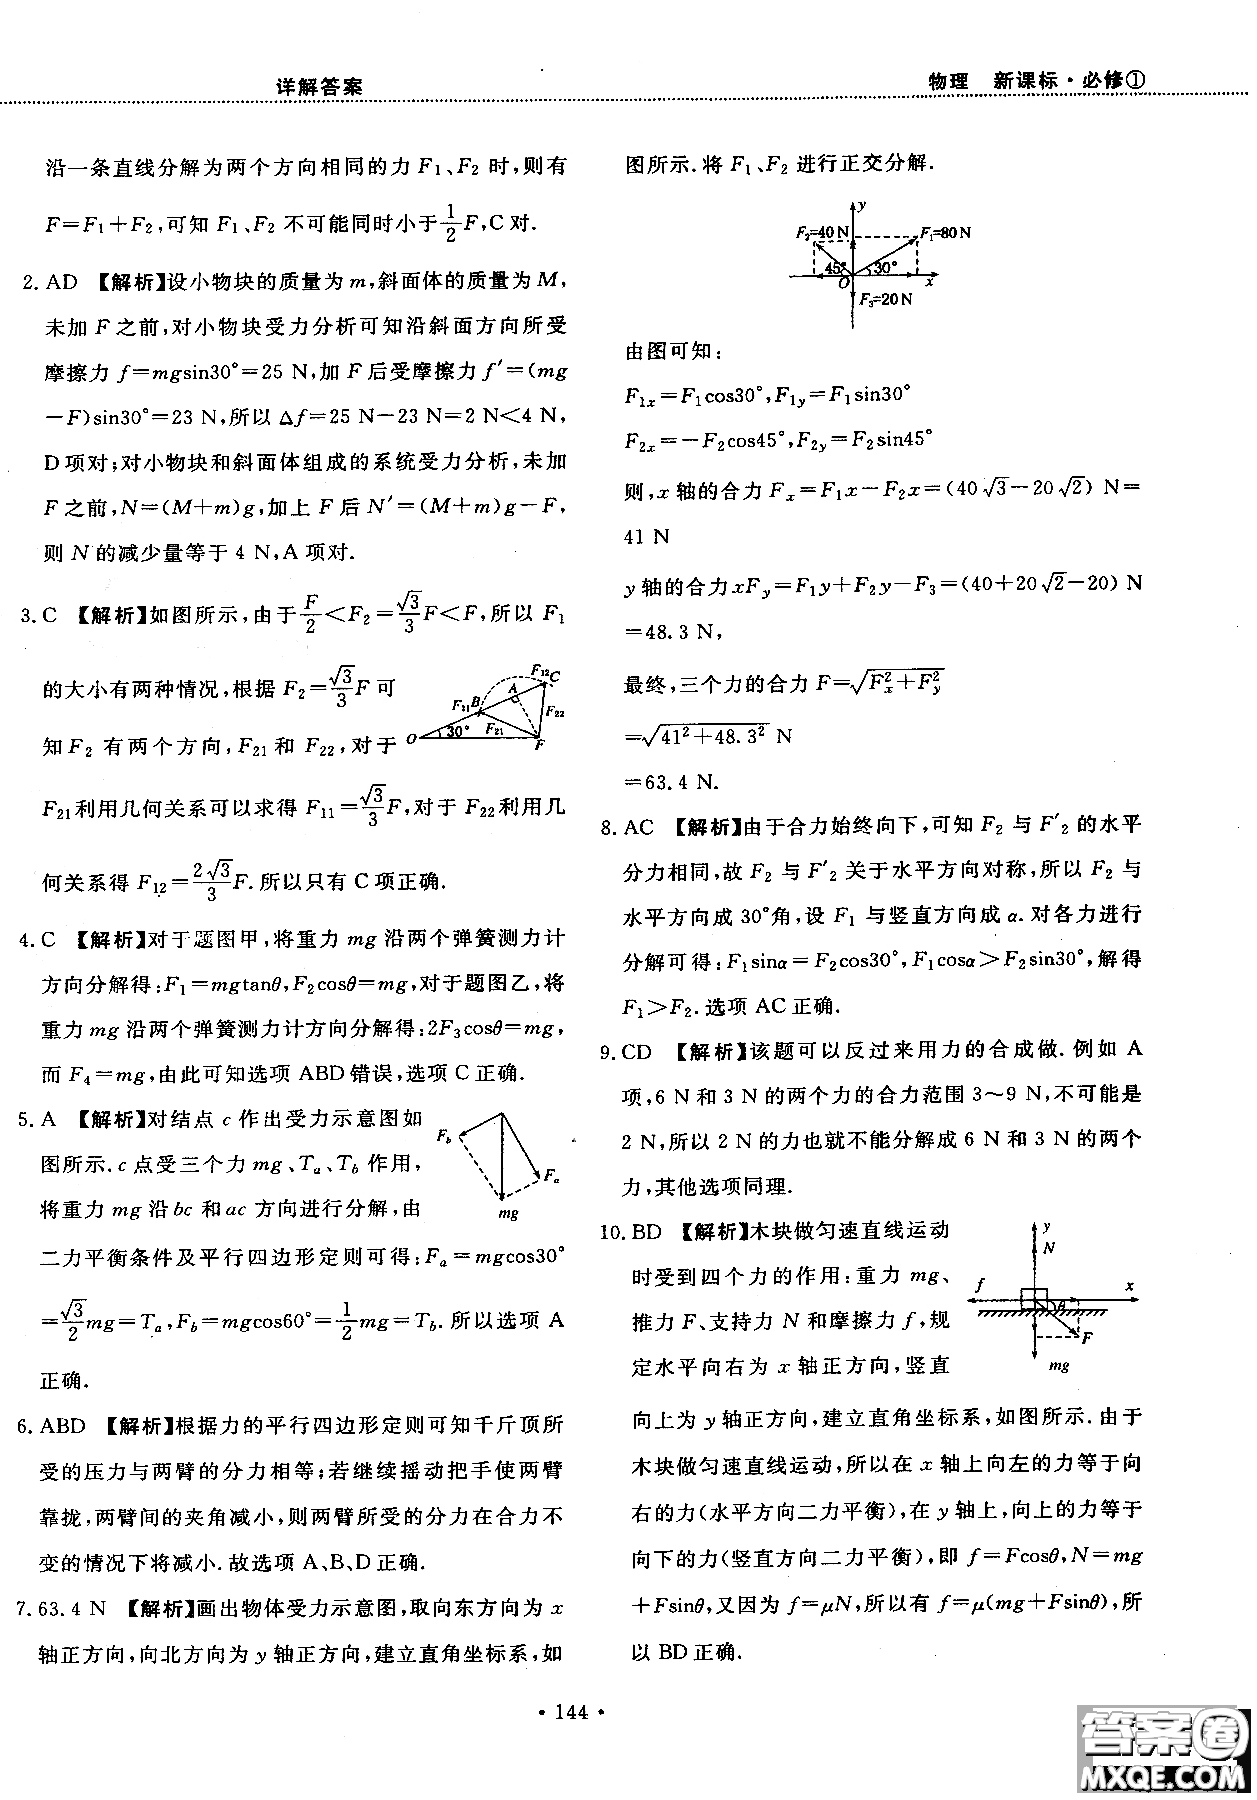 详解答案
物理 新课标·必修①
沿一条直线分解为两个方向相同的力 F₁、F₂ 时,则有
F=F₁+F₂,可知 F₁、F₂ 不可能同时小于1/2F,C对.
2. AD 【解析】设小物块的质量为 m,斜面体的质量为 M,
未加 F 之前,对小物块受力分析可知沿斜面方向所受
摩擦力 f=mgsin30°=25 N,加 F 后受摩擦力 f′=(mg
-F)sin30°=23 N,所以 Δf=25 N-23 N=2 N<4 N,
D项对;对小物块和斜面体组成的系统受力分析,未加
F 之前,N=(M+m)g,加上 F 后 N′=(M+m)g-F,
则 N 的减少量等于 4 N,A 项对.
3. C 【解析】如图所示,由于F/2<F₂=√3/3F<F,所以 F₁
的大小有两种情况,根据 F₂=√3/3F 可
知 F₂ 有两个方向,F₂₁和 F₂₂,对于
F₂₁利用几何关系可以求得 F₁₁=√3/3F,对于 F₂₂利用几
何关系得 F₁₂=2√3/3F.所以只有 C 项正确.
F₁₂ C
A
F₁₁ B
F₂₂
O 30° F₂₁ F
4. C 【解析】对于题图甲,将重力 mg 沿两个弹簧测力计
方向分解得:F₁=mgtanθ,F₂cosθ=mg,对于题图乙,将
重力 mg 沿两个弹簧测力计方向分解得:2F₃cosθ=mg,
而 F₄=mg,由此可知选项 ABD 错误,选项 C 正确.
5. A 【解析】对结点 c 作出受力示意图如
图所示. c 点受三个力 mg、Tₐ、T_b 作用,
将重力 mg 沿 bc 和 ac 方向进行分解,由
二力平衡条件及平行四边形定则可得:Fₐ=mgcos30°
=√3/2mg=Tₐ,F_b=mgcos60°=1/2mg=T_b.所以选项 A
正确.
F_b
Fₐ
mg
6. ABD 【解析】根据力的平行四边形定则可知千斤顶所
受的压力与两臂的分力相等;若继续摇动把手使两臂
靠拢,两臂间的夹角减小,则两臂所受的分力在合力不
变的情况下将减小.故选项 A、B、D 正确.
7. 63.4 N 【解析】画出物体受力示意图,取向东方向为 x
轴正方向,向北方向为 y 轴正方向,建立直角坐标系,如
图所示.将 F₁、F₂ 进行正交分解.
y
F₂=40 N F₁=80 N
45° 30°
O x
F₃=20 N
由图可知:
F₁ₓ=F₁cos30°,F₁ᵧ=F₁sin30°
F₂ₓ=-F₂cos45°,F₂ᵧ=F₂sin45°
则,x 轴的合力 Fₓ=F₁x-F₂x=(40√3-20√2) N=
41 N
y 轴的合力xFᵧ=F₁y+F₂y-F₃=(40+20√2-20) N
=48.3 N,
最终,三个力的合力 F=√(Fₓ²+Fᵧ²)
=√(41²+48.3²) N
=63.4 N.
8. AC 【解析】由于合力始终向下,可知 F₂ 与 F′₂ 的水平
分力相同,故 F₂ 与 F′₂ 关于水平方向对称,所以 F₂ 与
水平方向成 30°角,设 F₁ 与竖直方向成 α.对各力进行
分解可得:F₁sinα=F₂cos30°,F₁cosα>F₂sin30°,解得
F₁>F₂.选项 AC 正确.
9. CD 【解析】该题可以反过来用力的合成做.例如 A
项,6 N 和 3 N 的两个力的合力范围 3~9 N,不可能是
2 N,所以 2 N 的力也就不能分解成 6 N 和 3 N 的两个
力,其他选项同理.
10. BD 【解析】木块做匀速直线运动
时受到四个力的作用:重力 mg、
推力 F、支持力 N 和摩擦力 f,规
定水平向右为 x 轴正方向,竖直
向上为 y 轴正方向,建立直角坐标系,如图所示.由于
木块做匀速直线运动,所以在 x 轴上向左的力等于向
右的力(水平方向二力平衡),在 y 轴上,向上的力等于
向下的力(竖直方向二力平衡),即 f=Fcosθ,N=mg
+Fsinθ,又因为 f=μN,所以有 f=μ(mg+Fsinθ),所
以 BD 正确.
y
N
f x
θ
F
mg
· 144 ·
答案圈
MXQE.COM